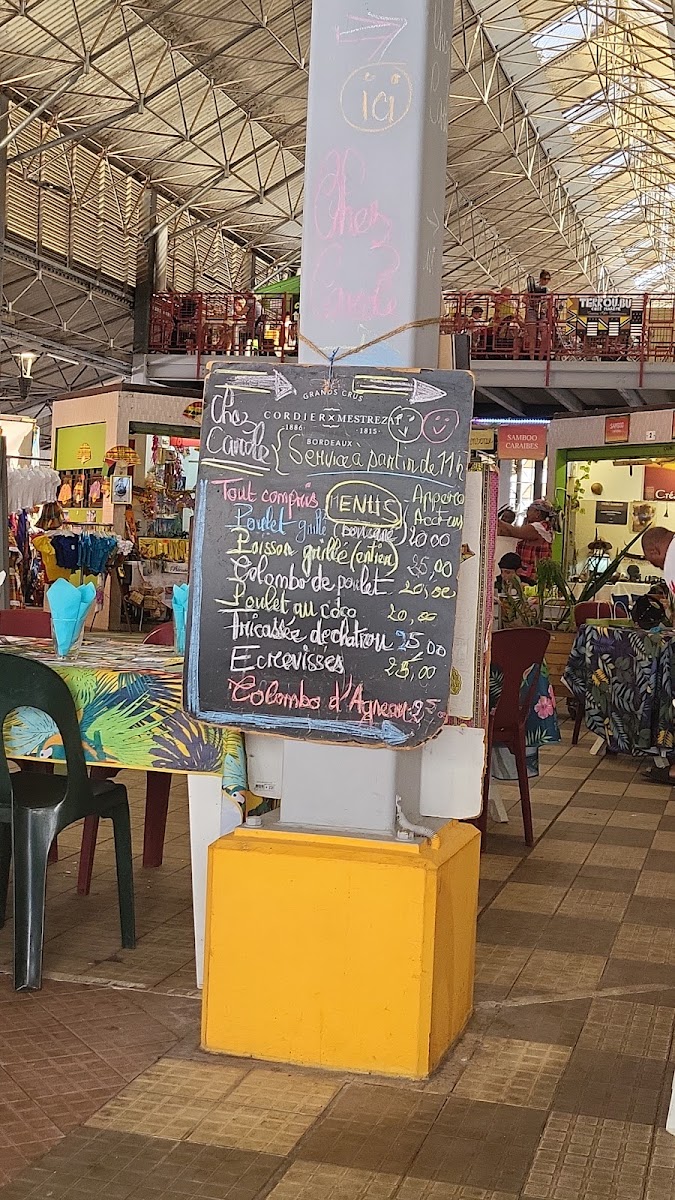 ici
Chez
Carole
TERROU.BU
SAMBOO
CARAIBES
GRANDS CRUS
CORDIER X MESTREZAT
1886 1815
BORDEAUX
Chez
Carole
Service a partin de 11h
Tout compris MENUS
Poulet grillé 20,00
Poisson grillé (entier) 25,00
Colombo de poulet 20,00
Poulet au côco 20,00
Fricassée de chatrou 25,00
Ecrevisses 25,00
Colombo d'Agneau